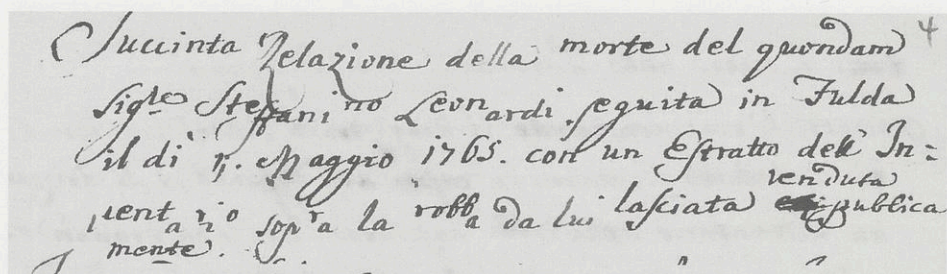 Succinta Relazione della morte del quondam 4
Sigle Steffanino Leonardi seguita in Fulda
il di 5. Maggio 1765. con un Estratto dell' In=
ventario sopra la robba da lui lasciata venduta publica
mente.